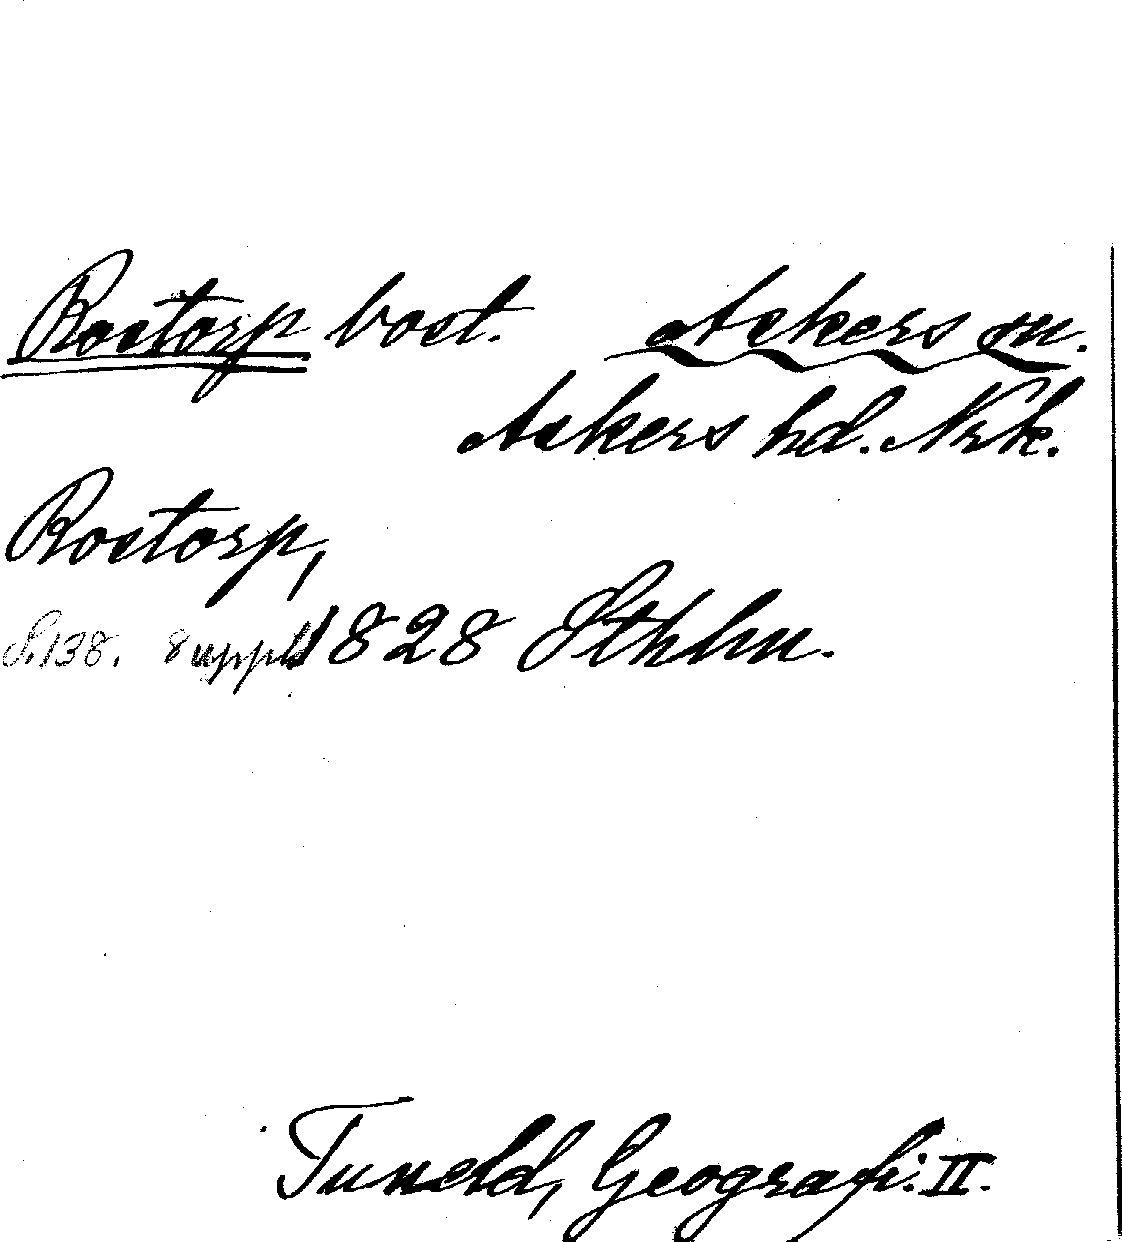 Rostorp bost. Askers sn.
Askers hd. Nrk.
Rostorp,
S. 138. 8 uppl. 1828 Sthlm.
Tuneld, Geografi: II.